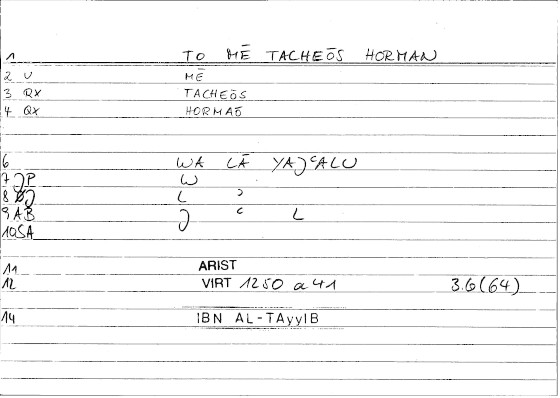 1 TO MĒ TACHEŌS HORMAN
2 U MĒ
3 QX TACHEŌS
4 QX HORMAŌ
6 WA LĀ YAJʿALU
7 JP W
8 J L ʾ
9 AB J ʿ L
10 SA
11 ARIST
12 VIRT 1250 a 41 3.6(64)
14 IBN AL-TAyyIB